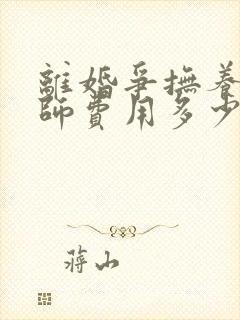 離婚爭撫養
師費用多少
蔣山